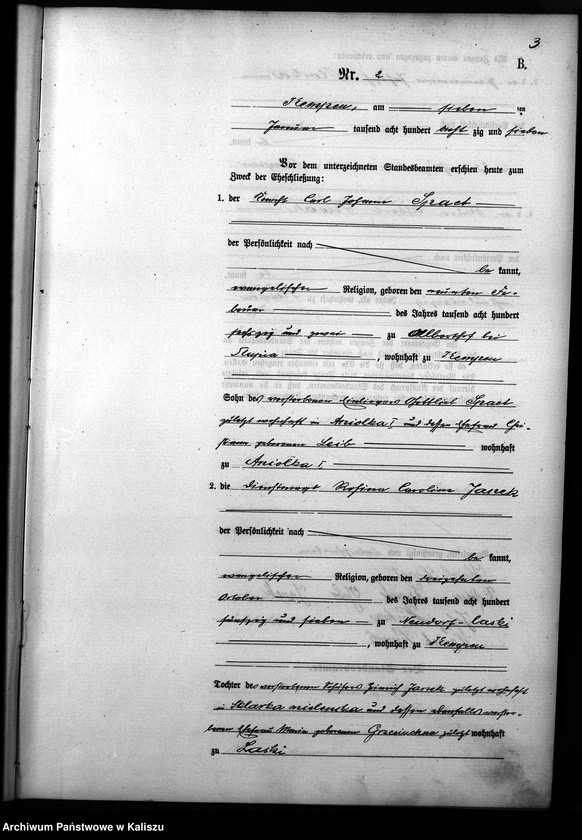 3
B.
Nr. 2
Kempen, am sieben ten
Januar tausend acht hundert acht zig und sieben
Vor dem unterzeichneten Standesbeamten erschien heute zum
Zweck der Eheschließung:
1. der Knecht Carl Johann Spaet
der Persönlichkeit nach
be kannt,
evangelischer Religion, geboren den neunten Fe-
bruar des Jahres tausend acht hundert
sechszig und zwei zu Albertshof bei
Slupia, wohnhaft zu Kempen
Sohn des verstorbenen Einliegers Gottlieb Spaet
zuletzt wohnhaft in Aniolka I und dessen Ehefrau Chri-
stiane geborenen Leib wohnhaft
zu Aniolka I
2. die Dienstmagd Rosina Caroline Janek
der Persönlichkeit nach
be kannt,
evangelischer Religion, geboren den dreizehnten
October des Jahres tausend acht hundert
fünfzig und sieben zu Neudorf-Laski
, wohnhaft zu Kempen
Tochter des verstorbenen Schäfers Heinrich Janek zuletzt wohnhaft
in Sklarka mielencka und dessen ebenfalls verstor-
benen Ehefrau Maria geborenen zuletzt wohnhaft
zu Laski
Archiwum Państwowe w Kaliszu